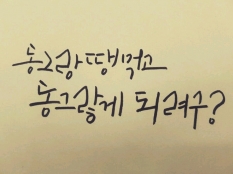 동그랑땡먹고
동그랗게 되려구?